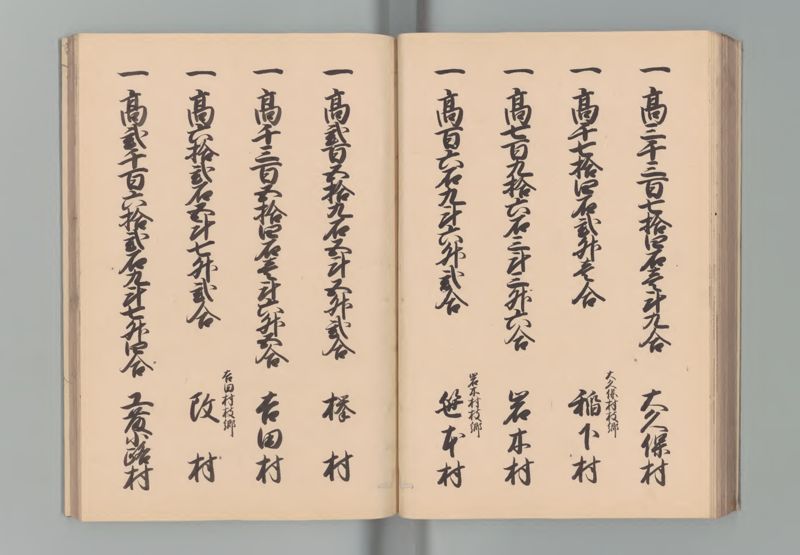 一 高三千三百七拾四石壱斗九合 大久保村
一 高千七拾四石弐升壱合 大久保村枝郷 稲下村
一 高七百九拾六石三斗三升六合 岩木村
一 高百六石九斗六升弐合 岩木村枝郷 笹本村
一 高弐百五拾九石五斗五升弐合 欅村
一 高千三百五拾四石壱斗六升五合 吉田村
一 高六拾弐石五斗七升弐合 吉田村枝郷 改村
一 高弐千百六拾弐石九斗七升四合 小路村